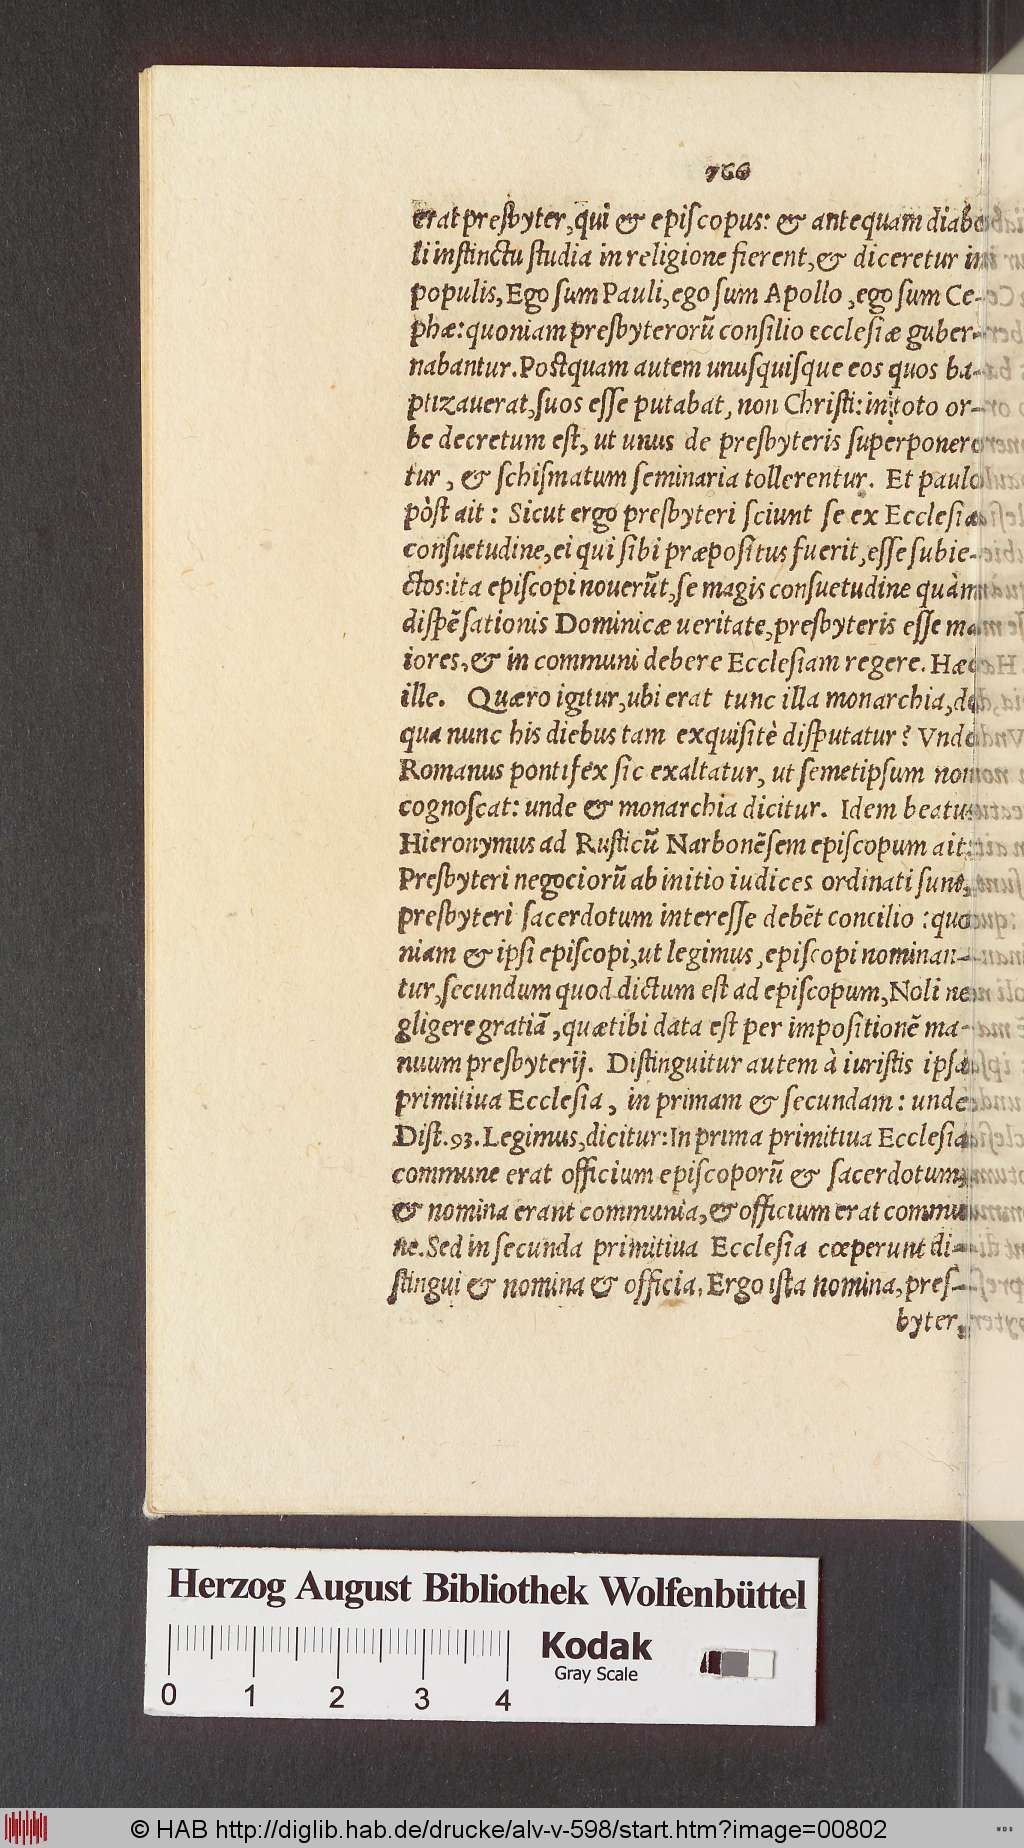 766
erat presbyter, qui & episcopus: & antequam diabo
li instinctu studia in religione fierent, & diceretur in
populis, Ego sum Pauli, ego sum Apollo, ego sum Ce-
phæ: quoniam presbyterorū consilio ecclesiæ guber-
nabantur. Postquam autem unusquisque eos quos ba-
ptizauerat, suos esse putabat, non Christi: in toto or-
be decretum est, ut unus de presbyteris superponere
tur, & schismatum seminaria tollerentur. Et paulo
pòst ait: Sicut ergo presbyteri sciunt se ex Ecclesiæ
consuetudine, ei qui sibi præpositus fuerit, esse subie-
ctos: ita episcopi nouerūt, se magis consuetudine quàm
dispēsationis Dominicæ ueritate, presbyteris esse ma
iores, & in communi debere Ecclesiam regere. Hæc
ille. Quæro igitur, ubi erat tunc illa monarchia, de
qua nunc his diebus tam exquisitè disputatur? Vnde
Romanus pontifex sic exaltatur, ut semetipsum non
cognoscat: unde & monarchia dicitur. Idem beatus
Hieronymus ad Rusticū Narbonēsem episcopum ait:
Presbyteri negociorū ab initio iudices ordinati sunt,
presbyteri sacerdotum interesse debēt concilio: quo
niam & ipsi episcopi, ut legimus, episcopi nominan-
tur, secundum quod dictum est ad episcopum, Noli ne
gligere gratiā, quæ tibi data est per impositionē ma-
nuum presbyterij. Distinguitur autem à iuristis ipsa
primitiua Ecclesia, in primam & secundam: unde
Dist. 93. Legimus, dicitur: In prima primitiua Ecclesia
commune erat officium episcoporū & sacerdotum,
& nomina erant communia, & officium erat commu
ne. Sed in secunda primitiua Ecclesia cœperunt di-
stingui & nomina & officia. Ergo ista nomina, pres-
byter,
Herzog August Bibliothek Wolfenbüttel
Kodak
Gray Scale
0 1 2 3 4
© HAB http://diglib.hab.de/drucke/alv-v-598/start.htm?image=00802